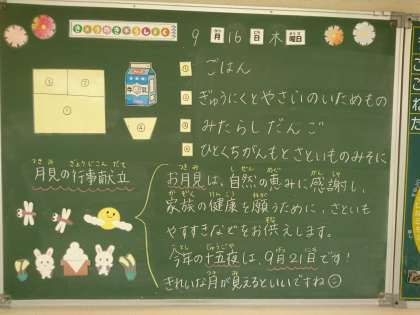 きょうのきゅうしょく
9月16日木曜日
① ごはん
② ぎゅうにくとやさいのいためもの
③ みたらしだんご
④ ひとくちがんもとさといものみそに
月見の行事献立
お月見は、自然の恵みに感謝し、
家族の健康を願うために、さといも
やすすきなどをお供えします。
今年の十五夜は、9月21日です！
きれいな月が見えるといいですね